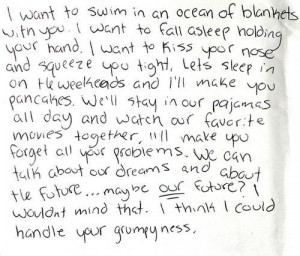 I want to swim in an ocean of blankets
with you. I want to fall asleep holding
your hand. I want to kiss your nose
and squeeze you tight. Lets sleep in
on the weekends and I'll make you
pancakes. We'll stay in our pajamas
all day and watch our favorite
movies together, I'll make you
forget all your problems. We can
talk about our dreams and about
the future... maybe our future? I
wouldnt mind that. I think I could
handle your grumpyness.